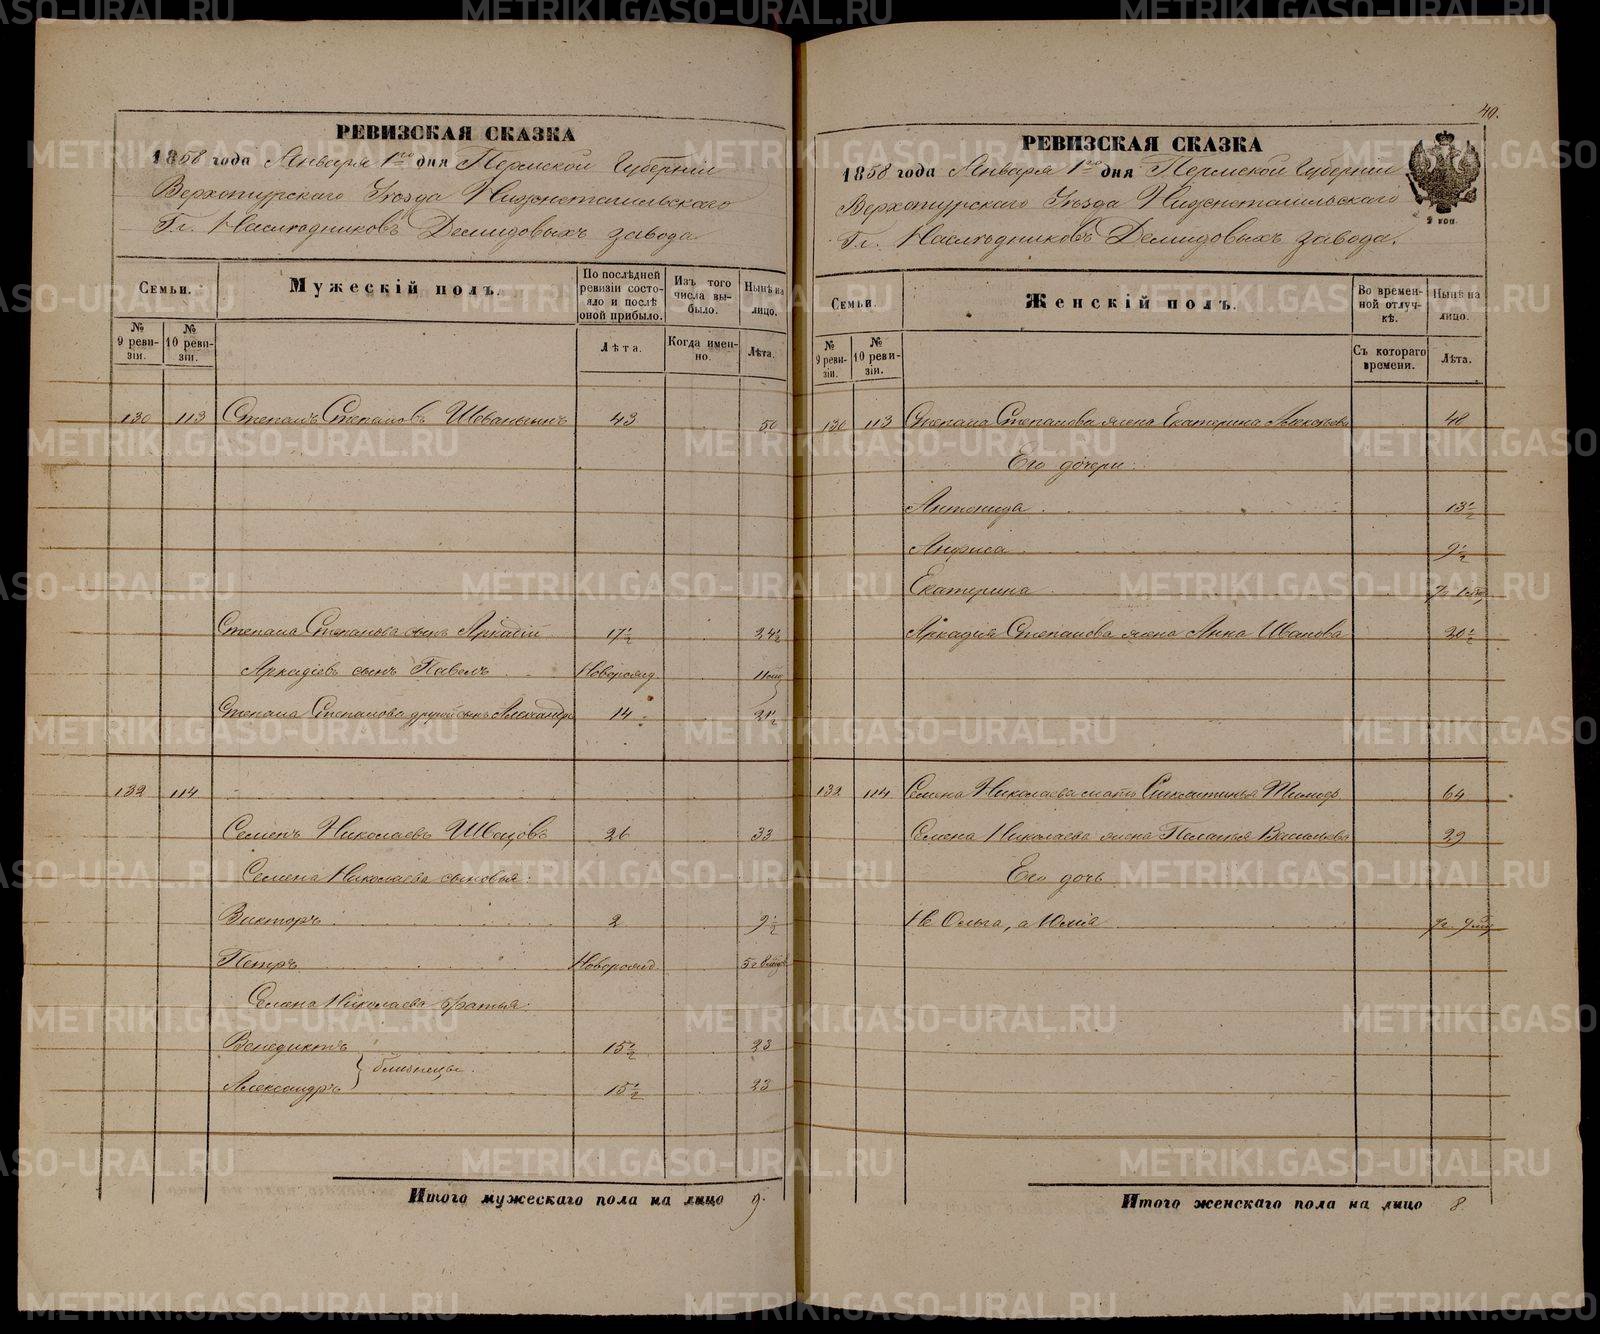 РЕВИЗСКАЯ СКАЗКА
1858 года Января 1го дня Пермской Губерніи
Верхотурскаго Уѣзда Нижнетагильскаго
Гг. Наслѣдниковъ Демидовыхъ завода
Семьи.
Мужескій полъ.
По послѣдней ревизіи состояло и послѣ оной прибыло.
Изъ того числа выбыло.
Нынѣ на лицо.
№ 9 ревизіи.
№ 10 ревизіи.
Лѣта.
Когда именно.
Лѣта.
130 113 Степанъ Степановъ 43 50
Степана Степанова сынъ Аркадій 17½ 24½
Аркадіевъ сынъ Павелъ Новорожд. 11 мц
Степана Степанова другой сынъ Александръ 14 21½
132 114
Семенъ Николаевъ Швецовъ 26 33
Семена Николаева сыновья:
Викторъ 2 9½
Петръ Новорожд. 5 г 8 мцов
Семена Николаева братья:
Венедиктъ 15½ 23
близнецы.
Александръ 15½ 23
Итого мужескаго пола на лицо 9.
49.
РЕВИЗСКАЯ СКАЗКА
1858 года Января 1го дня Пермской Губерніи
Верхотурскаго Уѣзда Нижнетагильскаго
Гг. Наслѣдниковъ Демидовыхъ завода.
Семьи.
Женскій полъ.
Во временной отлучкѣ.
Нынѣ на лицо.
№ 9 ревизіи.
№ 10 ревизіи.
Съ котораго времени.
Лѣта.
130 113 Степана Степанова жена Екатерина 48
Его дочери:
Антонида 13½
Анфиса 9½
Екатерина
Аркадія Степанова жена Анна Иванова 20½
132 114 Семена Николаева мать 64
Семена Николаева жена Пелагья Васильева 29
Его дочь
Не Ольга, а Юлія
Итого женскаго пола на лицо 8.
METRIKI.GASO-URAL.RU